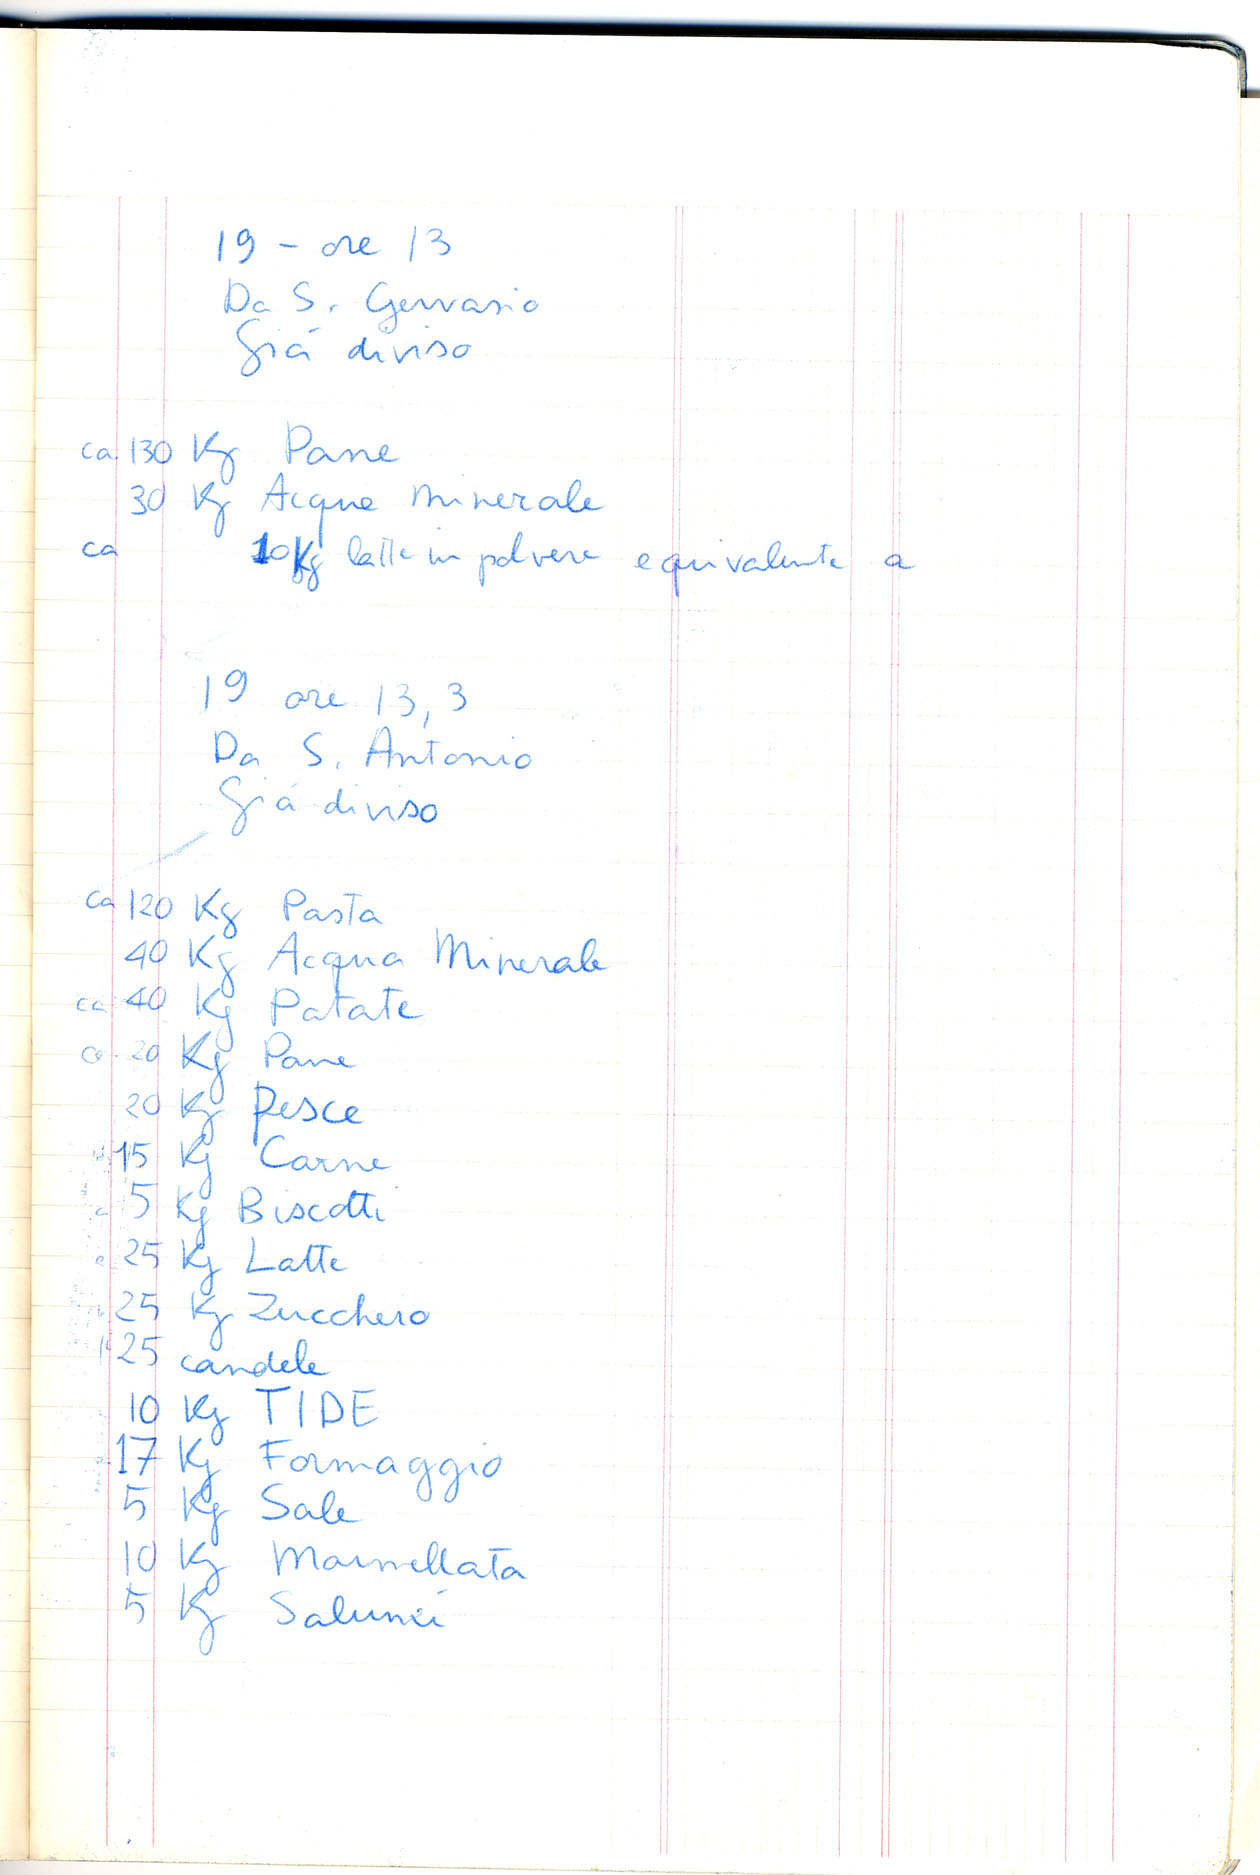 19 - ore 13
Da S. Gervasio
Giá diviso
ca. 130 Kg Pane
30 Kg Acqua Minerale
ca 10 Kg latte in polvere equivalente a
19 ore 13,3
Da S. Antonio
Giá diviso
ca 120 Kg Pasta
40 Kg Acqua Minerale
ca 40 Kg Patate
ca. 20 Kg Pane
20 Kg Pesce
15 Kg Carne
5 Kg Biscotti
25 Kg Latte
25 Kg Zucchero
25 candele
10 Kg TIDE
17 Kg Formaggio
5 Kg Sale
10 Kg Marmellata
5 Kg Salumi